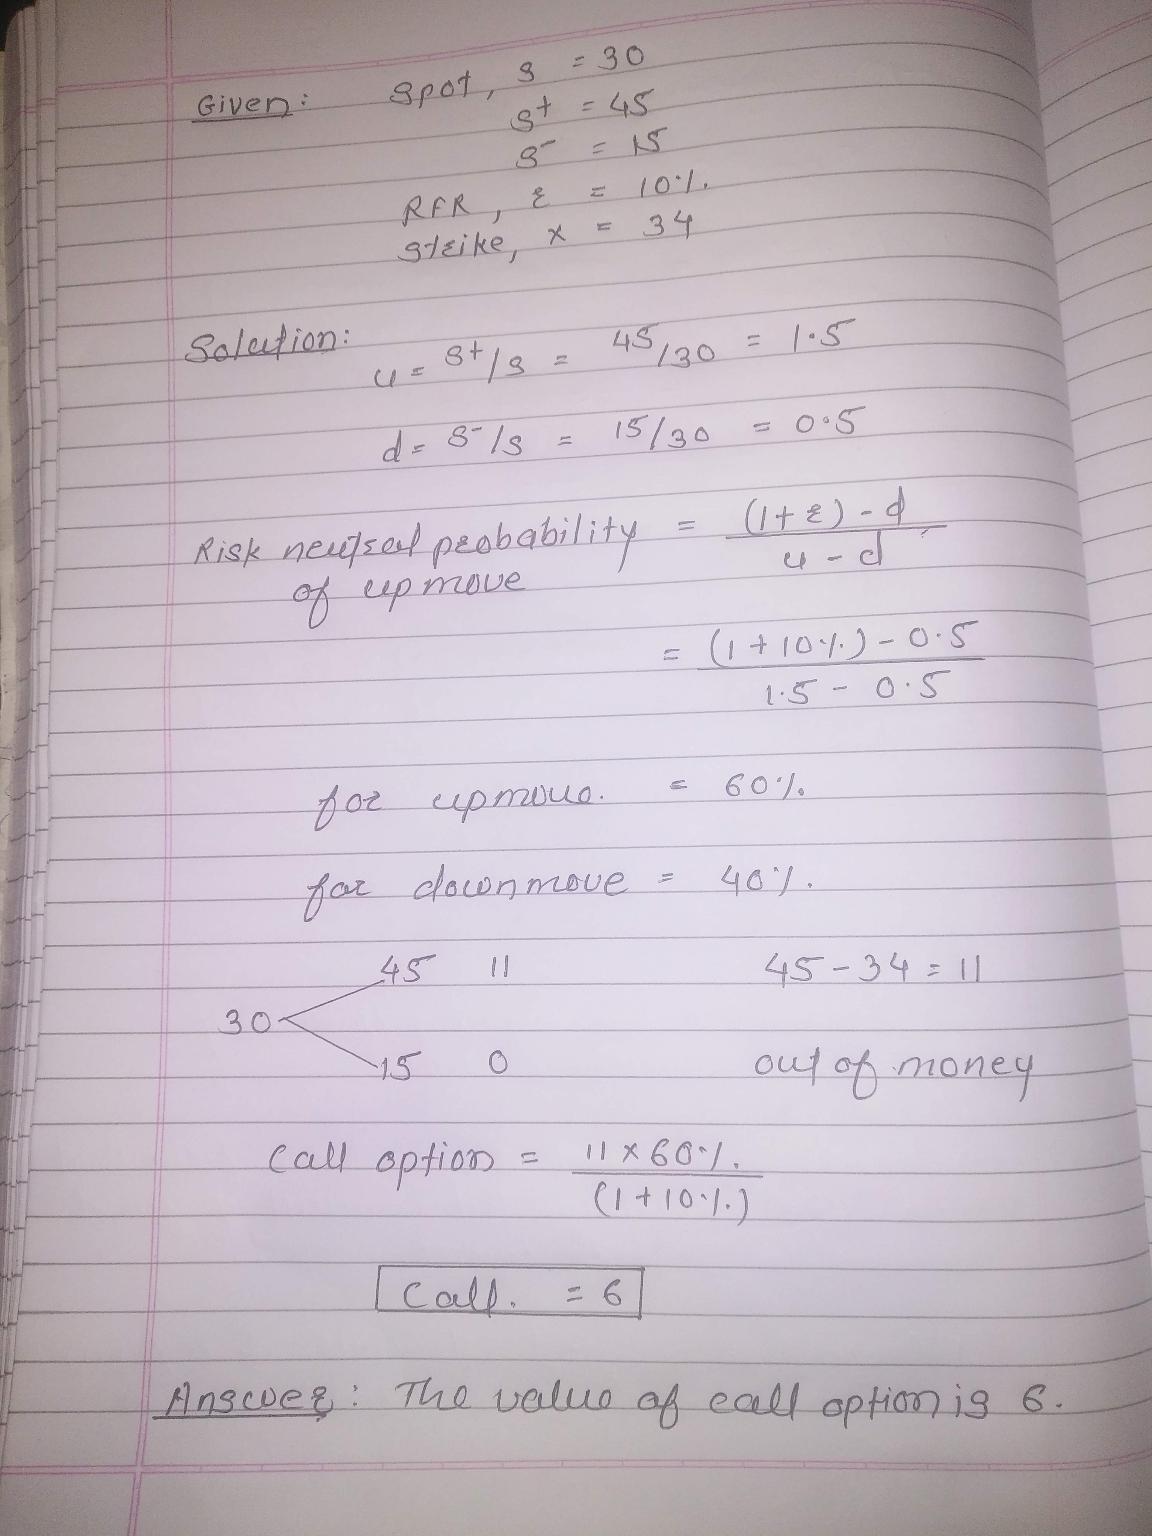 Given: Spot, S = 30
S+ = 45
S- = 15
RFR, r = 10%.
Strike, x = 34
Solution:
u = S+/S = 45/30 = 1.5
d = S-/S = 15/30 = 0.5
Risk neutral probability = (1+r)-d
of up move u-d
= (1+10%)-0.5
1.5 - 0.5
for upmove. = 60%
for downmove = 40%.
45 11 45-34=11
30
15 0 out of money
Call option = 11x60%.
(1+10%)
Call. = 6
Answer: The value of call option is 6.